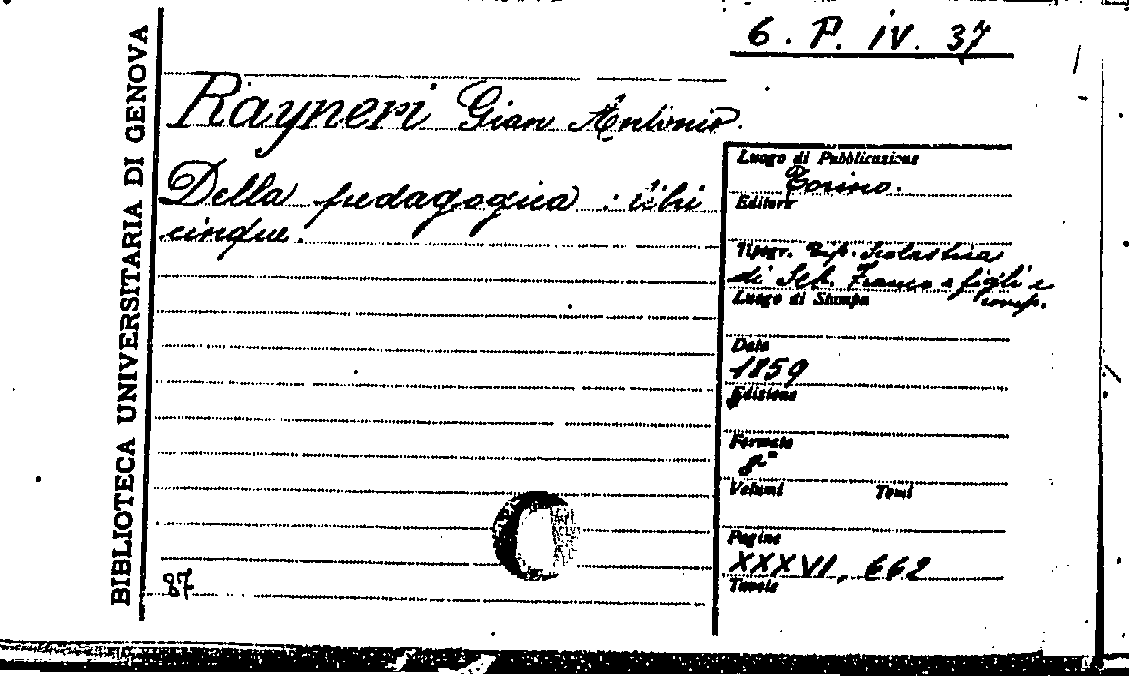 BIBLIOTECA UNIVERSITARIA DI GENOVA
6. P. IV. 37
Rayneri Gian Antonio.
Della pedagogica : libri
cinque.
87
Luogo di Pubblicazione
Torino.
Editore
Tipogr. Tip. Scolastica
di Seb. Franco e figli e
comp.
Luogo di Stampa
Data
1859
Edizione
Formato
8°
Volumi Tomi
Pagine
XXXVI, 662
Tavole